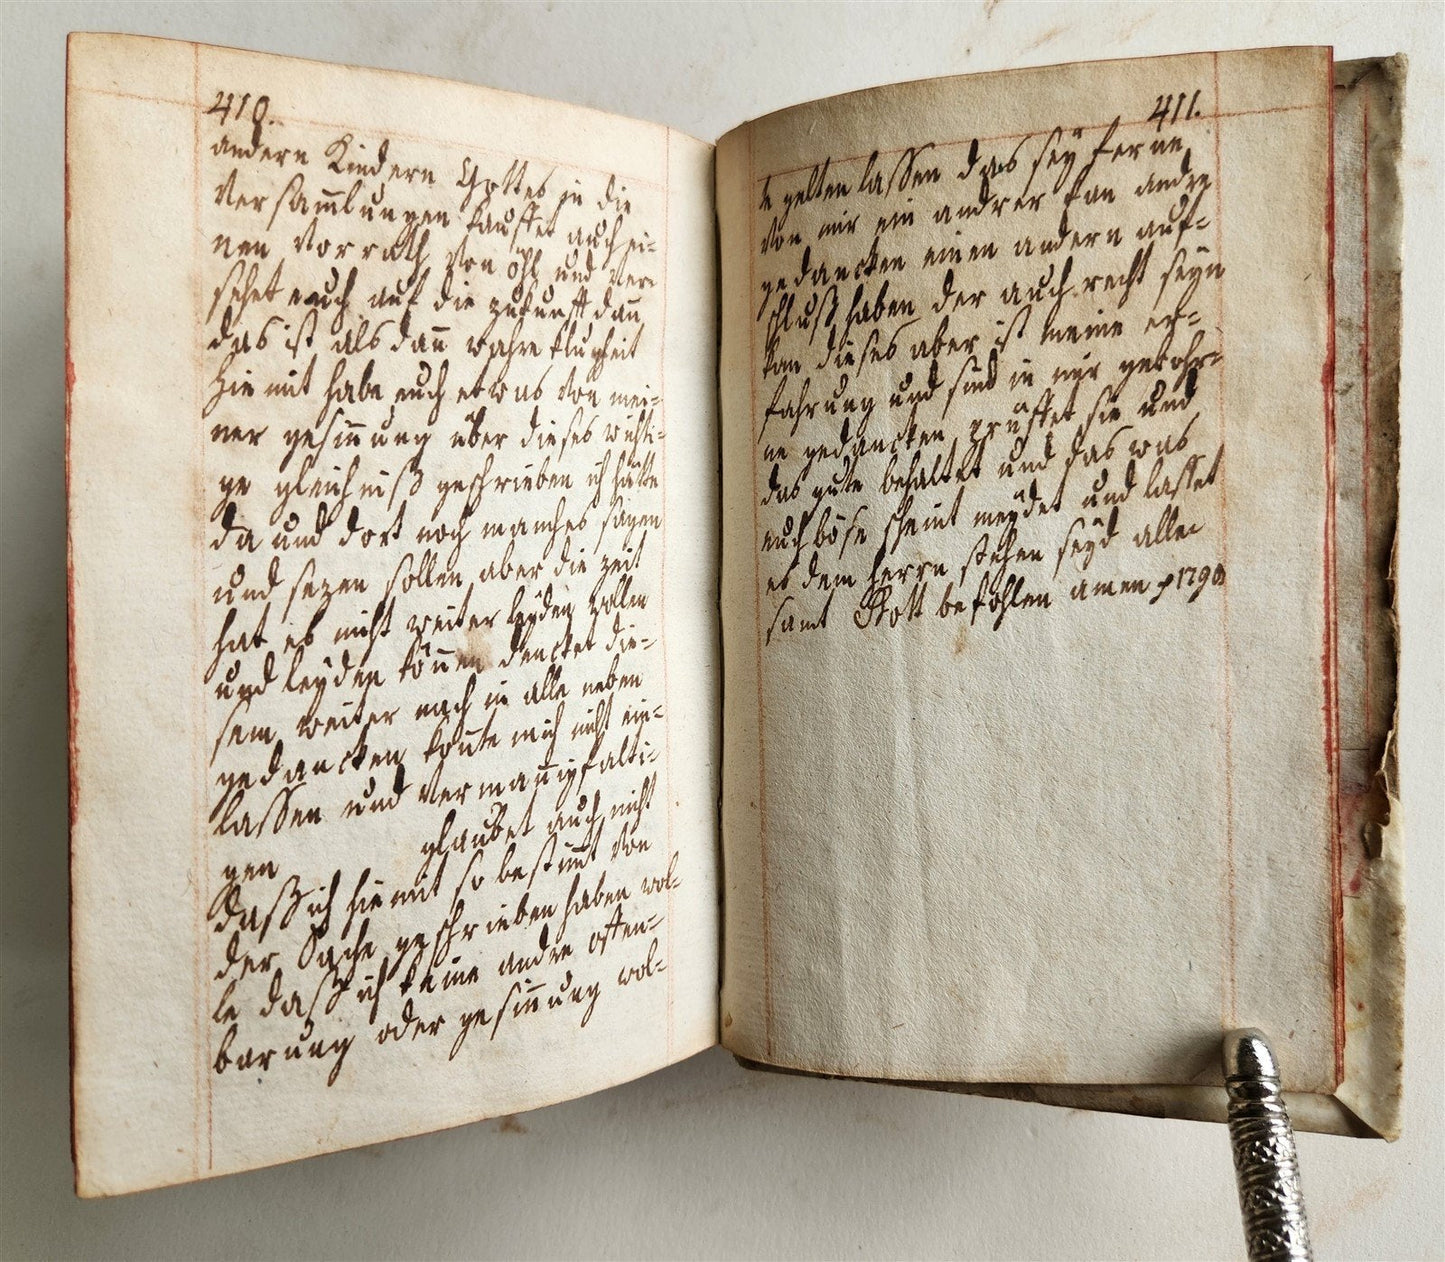 410.
andern Kindern Gottes in die
Versam̄lungen kauffet auch ei-
nen Vorrath Von öhl und ver-
sehet euch auf die zukunfft dañ
das ist als dañ wahre klugheit
Hie mit habe euch etwas Von mei-
ner gesiñung über dieses wichti-
ge gleichniß geschrieben ich hätte
da und dort noch manches sagen
und sezen sollen aber die zeit
hat es nicht weiter leyden wollen
und leyden köñen dencket die-
sem weiter nach in alle neben
gedancken konte mich nicht ein-
lassen und Vermañigfalti-
gen glaubet auch nicht
daß ich hiemit so bestim̄t von
der Sache geschrieben haben wol-
le daß ich keine andre offen-
barung oder gesiñung wol-
411.
le gelten lassen das sey ferne
Von mir ein andrer kan andre
gedancken einen andern auf-
schluß haben der auch recht seyn
kan dieses aber ist meine er-
fahrung und sind in mir gebohr-
ne gedancken prüffet sie und
das gute behaltet und das was
euch böse scheint meydet und lasset
es dem Herrn stehen seyd alle
samt Gott befohlen amen 1790